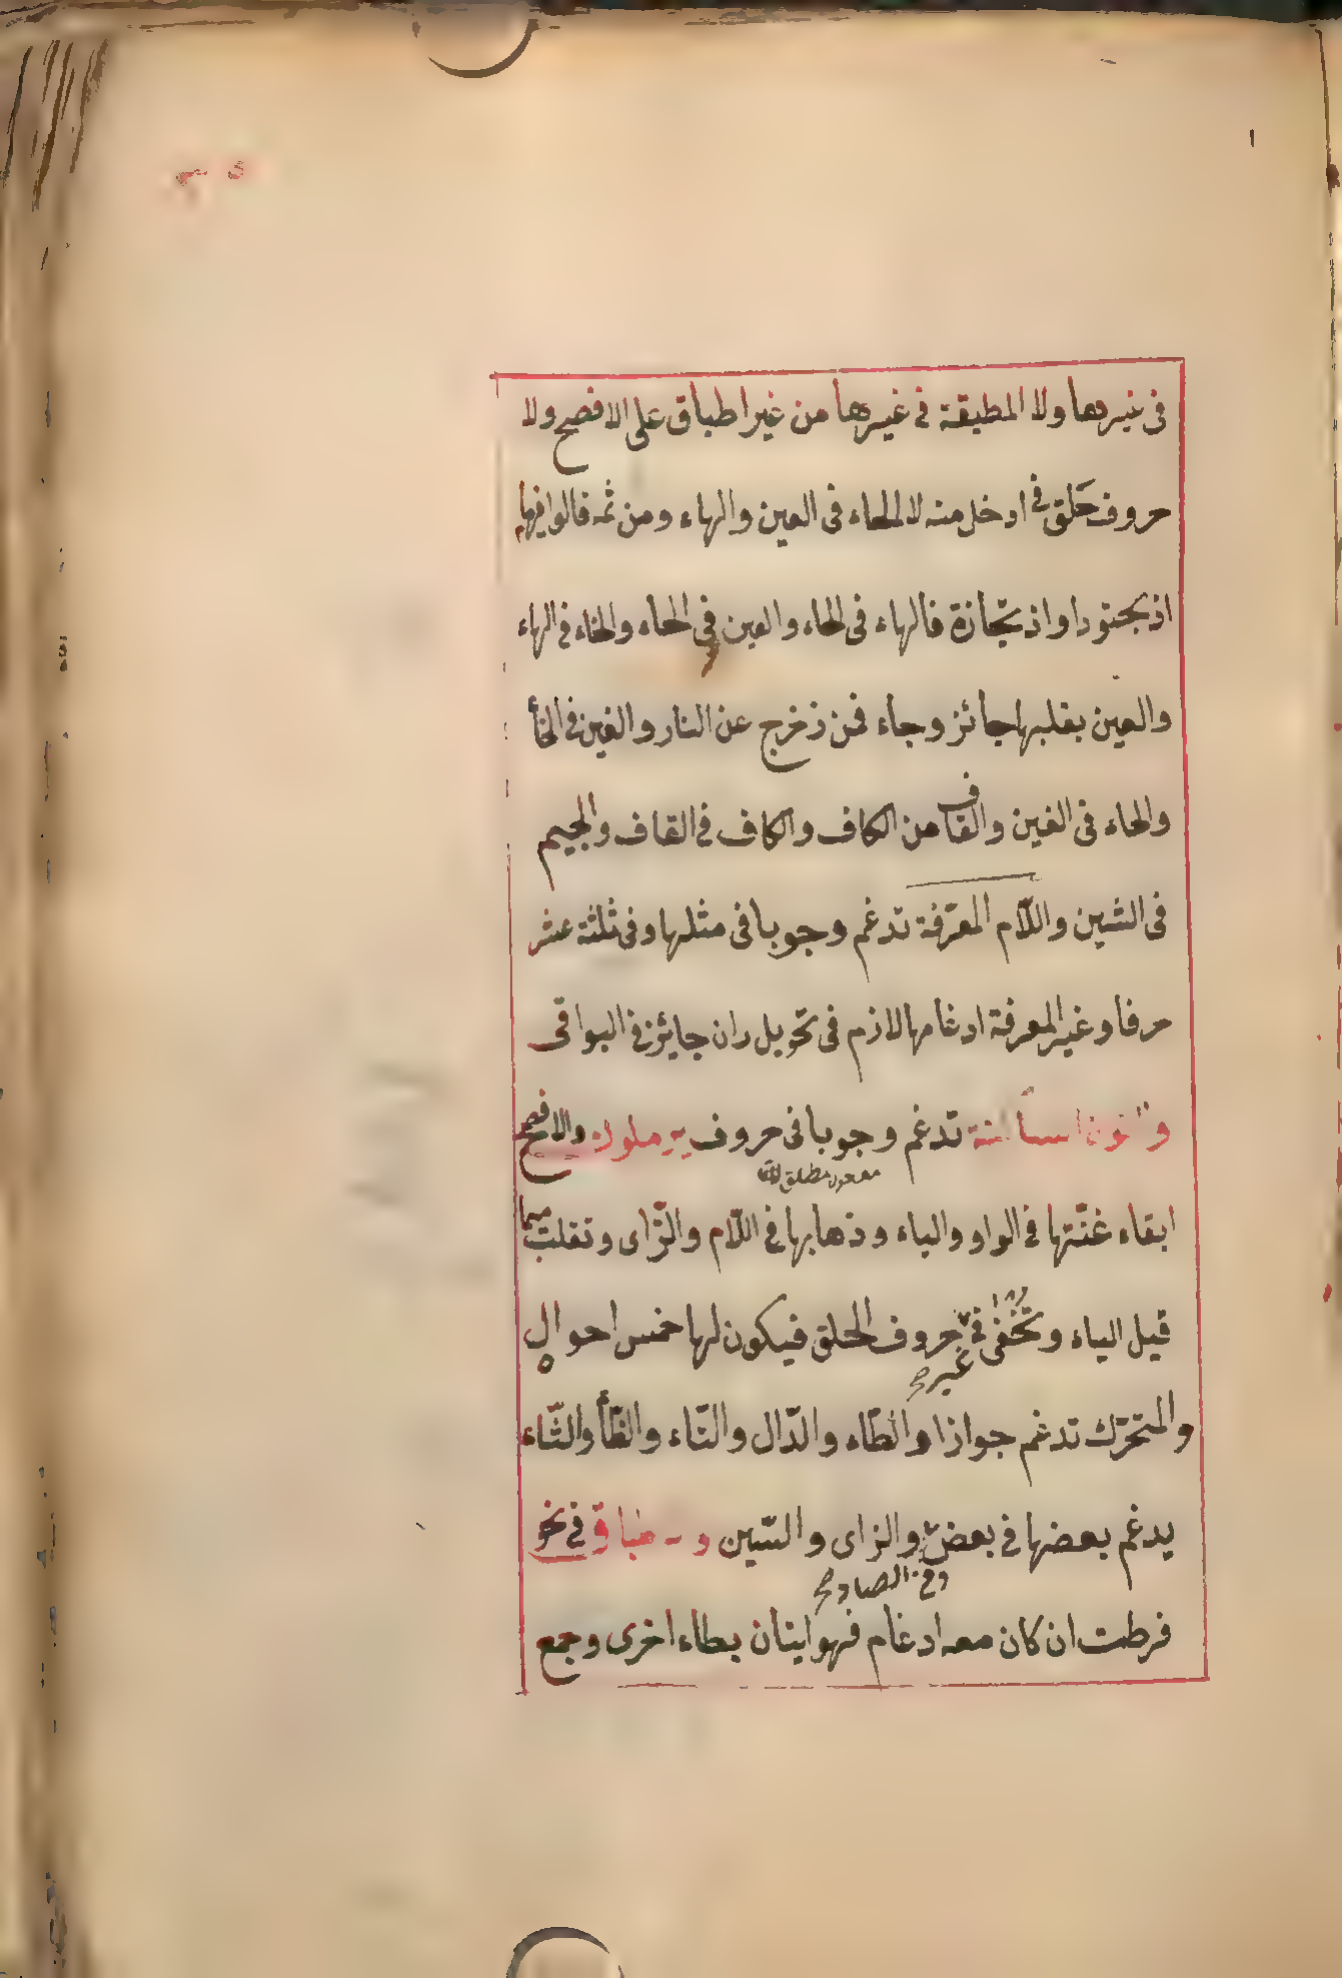 فى غيرها ولا المطبقة فى غيرها من غير اطباق على الافصح ولا
حروف حلق فى ادخل منه لا الحاء فى العين والهاء ومن ثمه قالوا فيها
اذ بحتودا واذ بحاّزة فالهاء فى الحاء والعين فى الحاء والحاء فى الهاء
والعين بقلبها جائز وجاء فمن زخرج عن النار والغين فى الخأ
والخاء فى الغين والقاف من الكاف والكاف فى القاف والجيم
فى الشين واللّام المعرّفة تدغم وجوبا فى مثلها وفى ثلثة عشر
حرفا وغير المعرفة ادغامها لازم فى نحو بل ران جايز فى البواقى
والنون الساكنة تدغم وجوبا فى حروف يرملون والافصح
مفعول مطلق
ابقاء غنّتها فى الواو والياء وذهابها فى اللّام والرّاى وتقلب ميما
قبل الباء وتخفى فى حروف الحلق فيكون لها خمس احوال
غير صح
والمتحرّك تدغم جوازا والطّاء والدّال والتّاء والظّأ والثّاء
يدغم بعضها فى بعض والزاى والسّين و اطباق فى نحو
وفى الصاد صح
فرطت ان كان معه ادغام فهو اتيان بطاء اخرى وجمع